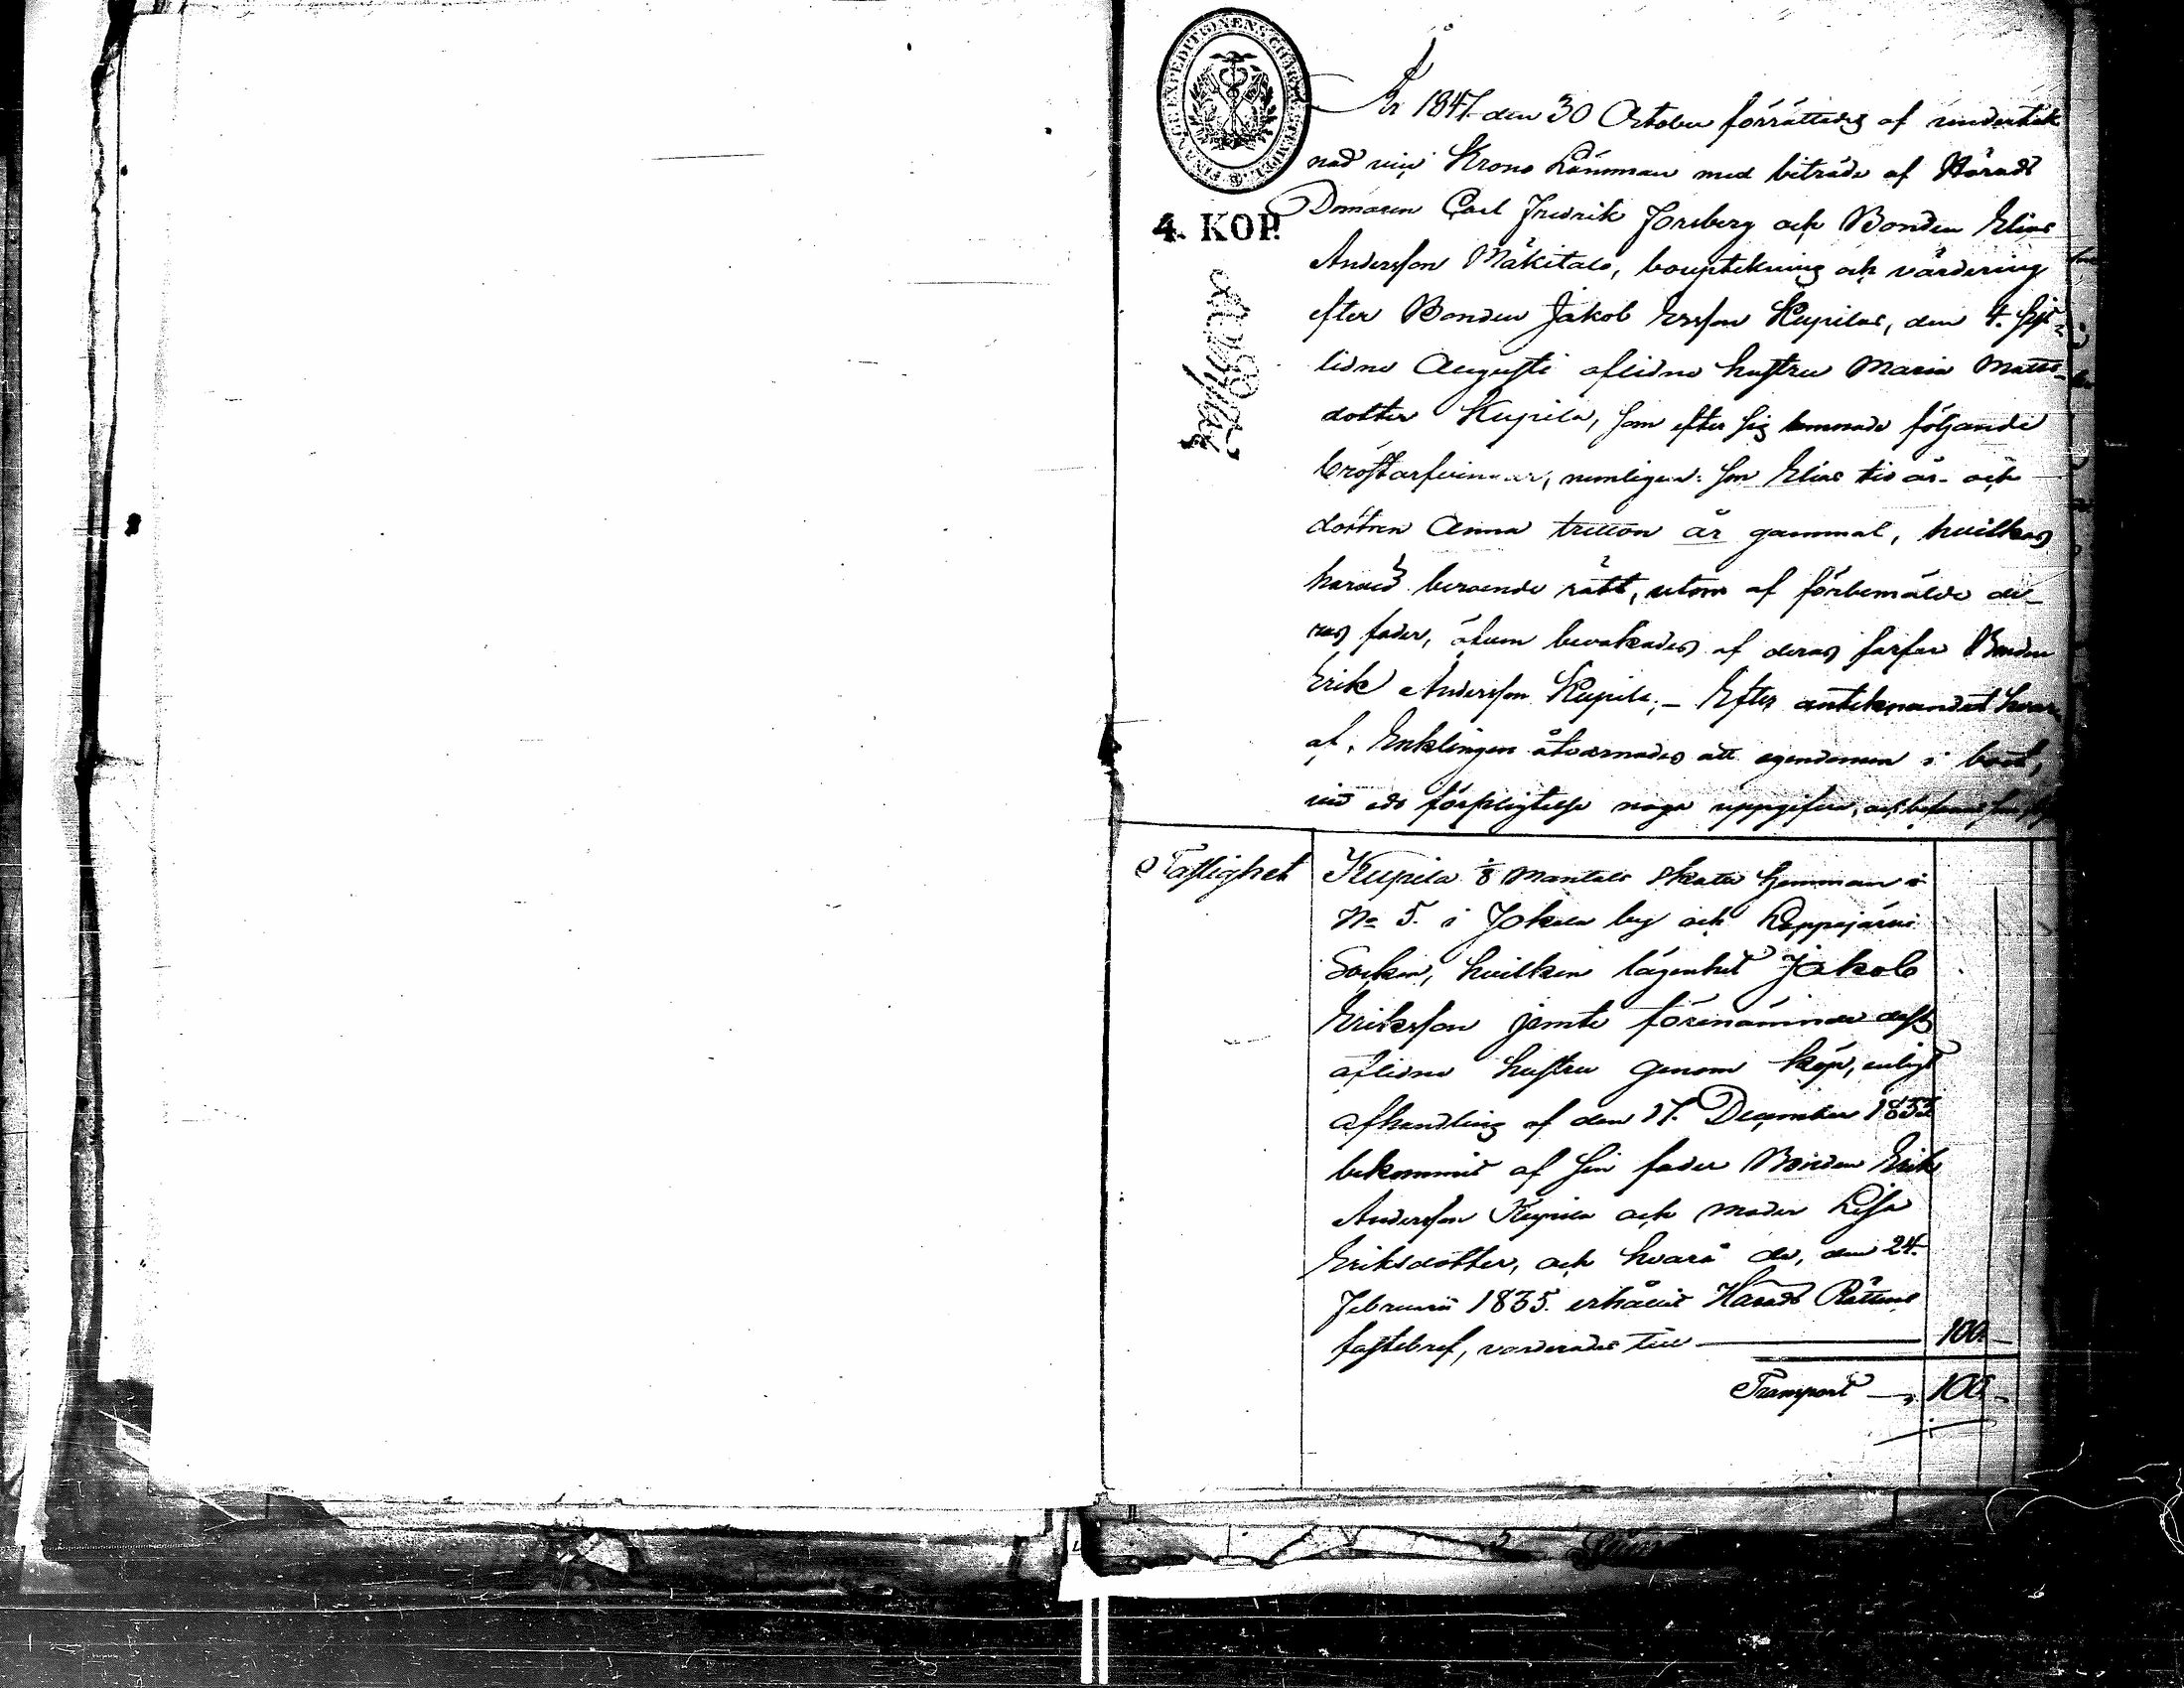 FINANCE EXPEDITIONENS CHARTÆ STEMPEL
4. KOP.
År 1847 den 30 October förrättades af undertek
nad vice Krono Länsman med biträde af Härads
Domaren Carl Fredrik Forsberg och Bonden Elias
Andersson Mäkitalo, bouptekning och värdering
efter Bonden Jakob Ersson Kupilas, den 4. sist-
lidne Augusti aflidne hustru Maria Matts-
dotter Kupila, som efter sig lemnade följande
bröstarfvingar, nemligen: son Elias tio år och
dottren Anna tretton år gammal, hvilkas
häraf beroende rätt, utom af förbemälde de-
ras fader, äfven bevakades af deras farfar Bonden
Erik Andersson Kupila; – Efter antecknandet hvar
af, Enklingen åtvarnades att egendomen i boet,
vid eds förpligtelse noga uppgifva, och befanns
Fastighet
Kupila 1/8 Mantals Skatte Hemman
No 5. i Jokela by och Lappajärvi
Socken, hvilken lägenhet Jakob
Eriksson jemte förenämnde dess
aflidne hustru genom köp, enligt
afhandling af den 17. December 1833
bekommit af sin fader Bonden Erik
Andersson Kupila och moder Lisa
Eriksdotter, och hvarå de, den 24.
Februarii 1835. erhållit Härads Rättens
fastebref, värderades till 100.–
Transport 100.–